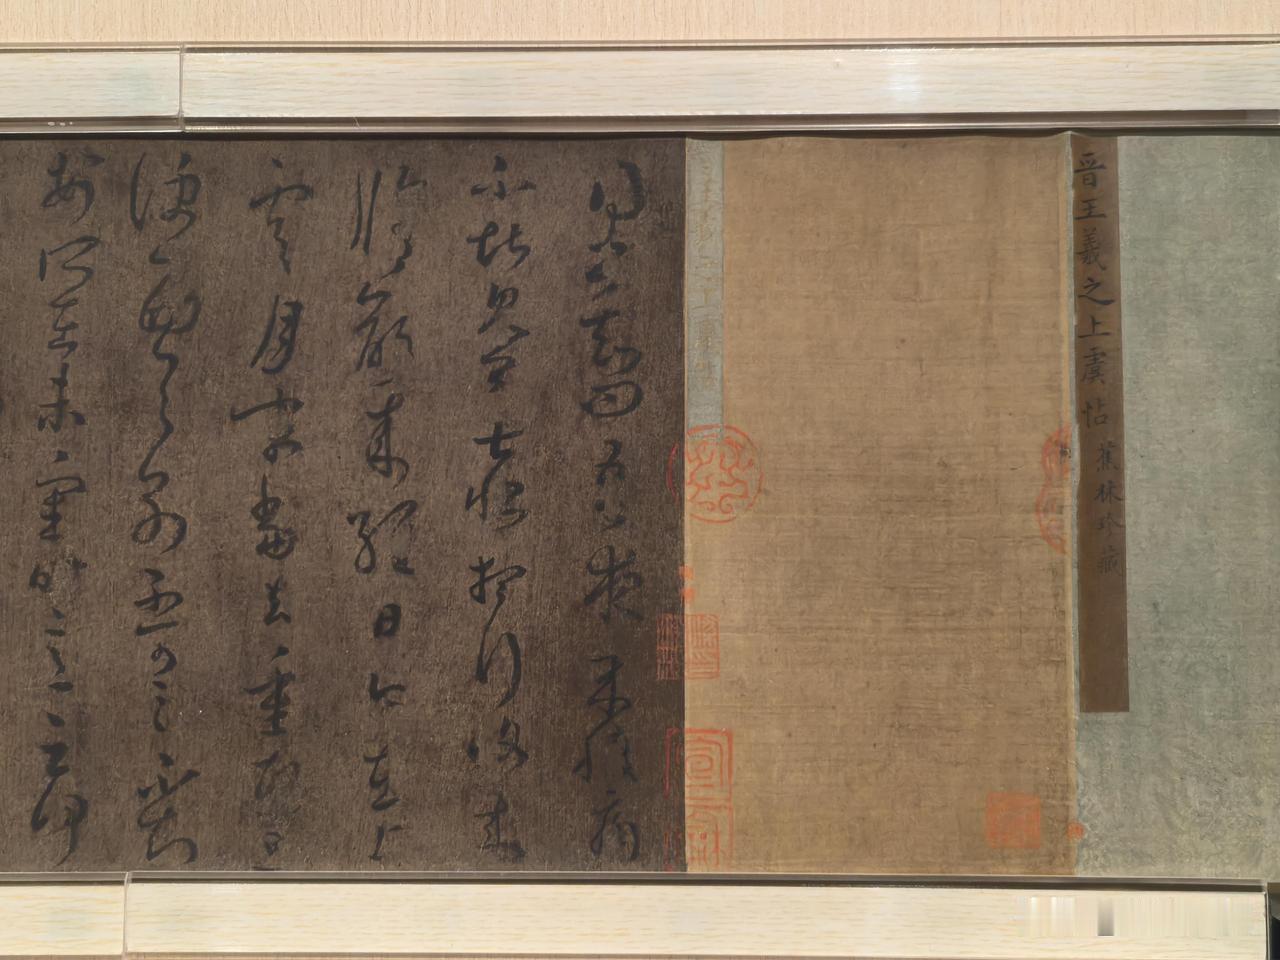 晋王羲之上虞帖 蕉林珍藏
得書知問吾夜來腹痛
不堪見卿甚恨想行復来
脩齡来經日今在上
虞月末當去重熙旦
便西與別不可言不知
安所在未審時意云何